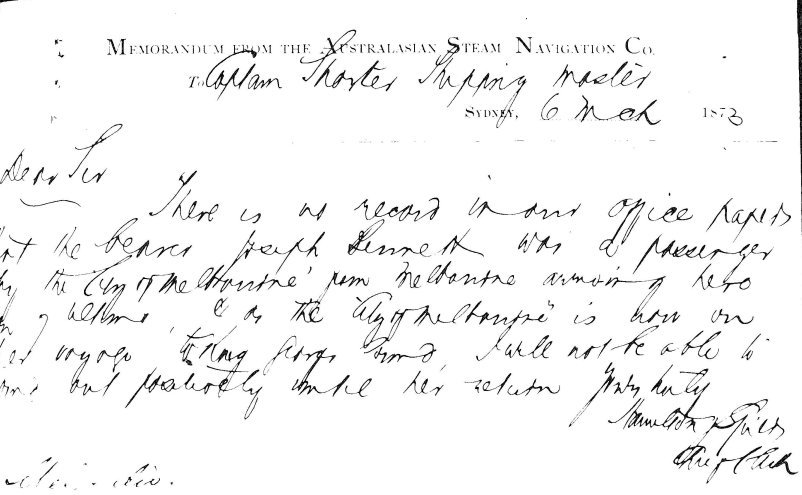 MEMORANDUM FROM THE AUSTRALASIAN STEAM NAVIGATION CO.
To Captain Shorter Shipping Master
SYDNEY, 6 Mch 1873
Dear Sir
There is no record in our office papers
the bearer Joseph Bennett was a passenger
the "City of Melbourne" from Melbourne arriving here
ultimo, & as the "City of Melbourne" is now on
voyage to King Georges Sound, I will not be able to
out positively until her return Yours truly
Hamilton
Chief Clerk